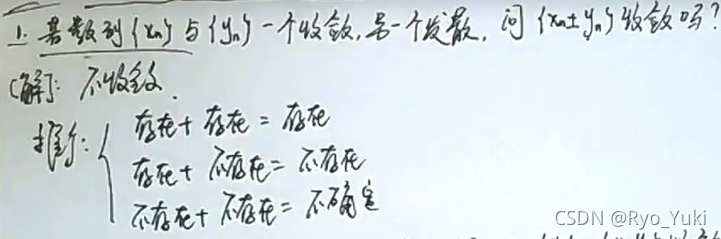 1. 若数列{xn}与{yn}一个收敛,另一个发散,问{xn±yn}收敛吗?
[解]: 不收敛.
推广:
存在+存在=存在
存在+不存在=不存在
不存在+不存在=不确定
CSDN @Ryo_Yuki